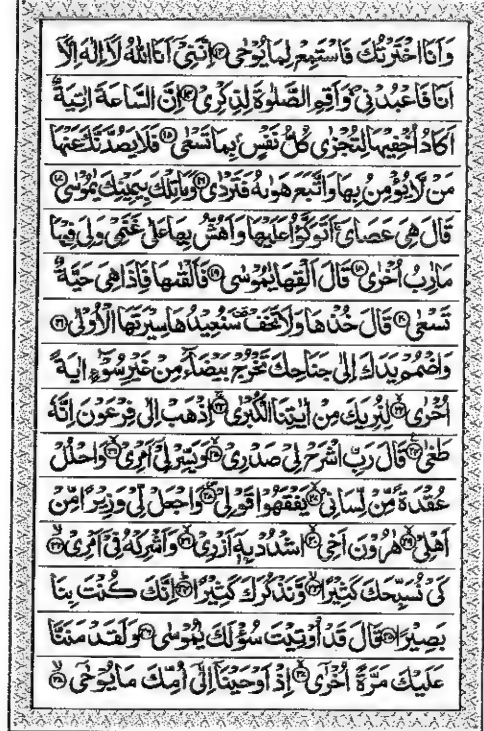 وَاَنَا اخْتَرْتُكَ فَاسْتَمِعْ لِمَا يُوْحٰى ﴿۱۳﴾ اِنَّنِيْۤ اَنَا اللّٰهُ لَاۤ اِلٰهَ اِلَّاۤ
اَنَا فَاعْبُدْنِيْ ۙ وَاَقِمِ الصَّلٰوةَ لِذِكْرِيْ ﴿۱۴﴾ اِنَّ السَّاعَةَ اٰتِيَةٌ
اَكَادُ اُخْفِيْهَا لِتُجْزٰى كُلُّ نَفْسٍۭ بِمَا تَسْعٰى ﴿۱۵﴾ فَلَا يَصُدَّنَّكَ عَنْهَا
مَنْ لَّا يُؤْمِنُ بِهَا وَاتَّبَعَ هَوٰىهُ فَتَرْدٰى ﴿۱۶﴾ وَمَا تِلْكَ بِيَمِيْنِكَ يٰمُوْسٰى ﴿۱۷﴾
قَالَ هِيَ عَصَايَ ۚ اَتَوَكَّؤُا عَلَيْهَا وَاَهُشُّ بِهَا عَلٰى غَنَمِيْ وَلِيَ فِيْهَا
مَاٰرِبُ اُخْرٰى ﴿۱۸﴾ قَالَ اَلْقِهَا يٰمُوْسٰى ﴿۱۹﴾ فَاَلْقٰىهَا فَاِذَا هِيَ حَيَّةٌ
تَسْعٰى ﴿۲۰﴾ قَالَ خُذْهَا وَلَا تَخَفْ ۥ سَنُعِيْدُهَا سِيْرَتَهَا الْاُوْلٰى ﴿۲۱﴾
وَاضْمُمْ يَدَكَ اِلٰى جَنَاحِكَ تَخْرُجْ بَيْضَآءَ مِنْ غَيْرِ سُوْٓءٍ اٰيَةً
اُخْرٰى ﴿۲۲﴾ لِنُرِيَكَ مِنْ اٰيٰتِنَا الْكُبْرٰى ﴿۲۳﴾ اِذْهَبْ اِلٰى فِرْعَوْنَ اِنَّهٗ
طَغٰى ﴿۲۴﴾ قَالَ رَبِّ اشْرَحْ لِيْ صَدْرِيْ ﴿۲۵﴾ وَيَسِّرْ لِيْۤ اَمْرِيْ ﴿۲۶﴾ وَاحْلُلْ
عُقْدَةً مِّنْ لِّسَانِيْ ﴿۲۷﴾ يَفْقَهُوْا قَوْلِيْ ﴿۲۸﴾ وَاجْعَلْ لِّيْ وَزِيْرًا مِّنْ
اَهْلِيْ ﴿۲۹﴾ هٰرُوْنَ اَخِيْ ﴿۳۰﴾ اشْدُدْ بِهٖۤ اَزْرِيْ ﴿۳۱﴾ وَاَشْرِكْهُ فِيْۤ اَمْرِيْ ﴿۳۲﴾
كَيْ نُسَبِّحَكَ كَثِيْرًا ﴿۳۳﴾ وَّنَذْكُرَكَ كَثِيْرًا ﴿۳۴﴾ اِنَّكَ كُنْتَ بِنَا
بَصِيْرًا ﴿۳۵﴾ قَالَ قَدْ اُوْتِيْتَ سُؤْلَكَ يٰمُوْسٰى ﴿۳۶﴾ وَلَقَدْ مَنَنَّا
عَلَيْكَ مَرَّةً اُخْرٰۤى ﴿۳۷﴾ اِذْ اَوْحَيْنَاۤ اِلٰۤى اُمِّكَ مَا يُوْحٰۤى ﴿۳۸﴾